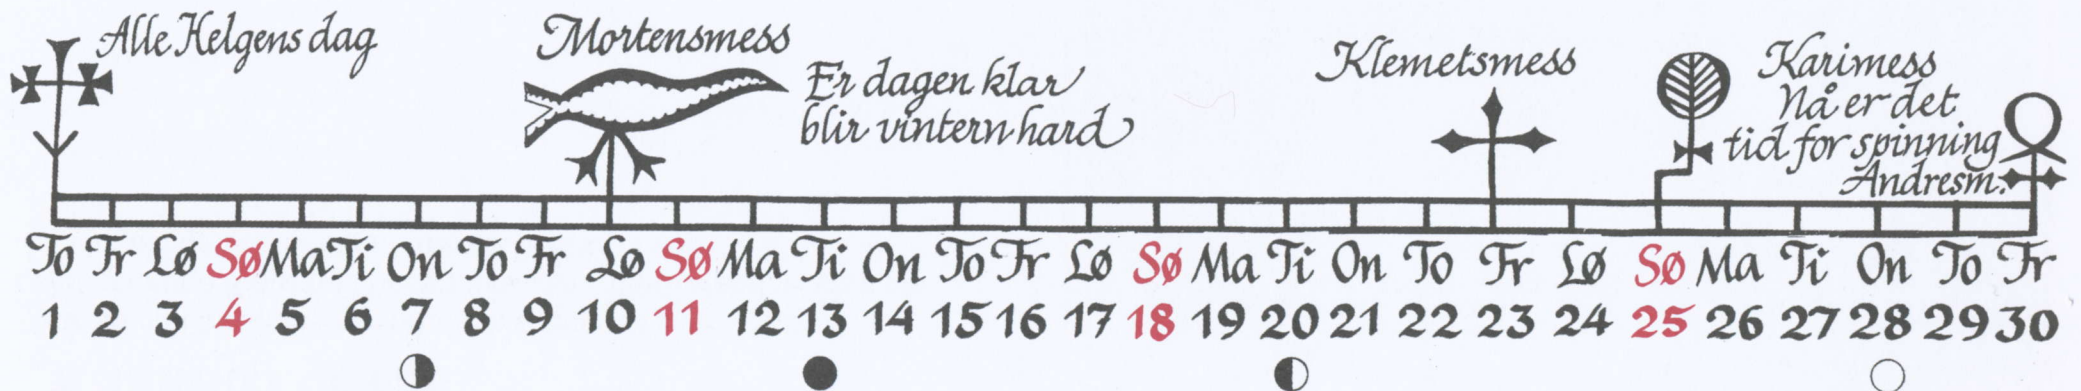 Alle Helgens dag
Mortensmess
Er dagen klar
blir vintern hard
Klemetsmess
Karimess
Nå er det
tid for spinning
Andresm.
To Fr Lø Sø Ma Ti On To Fr Lø Sø Ma Ti On To Fr Lø Sø Ma Ti On To Fr Lø Sø Ma Ti On To Fr
1 2 3 4 5 6 7 8 9 10 11 12 13 14 15 16 17 18 19 20 21 22 23 24 25 26 27 28 29 30